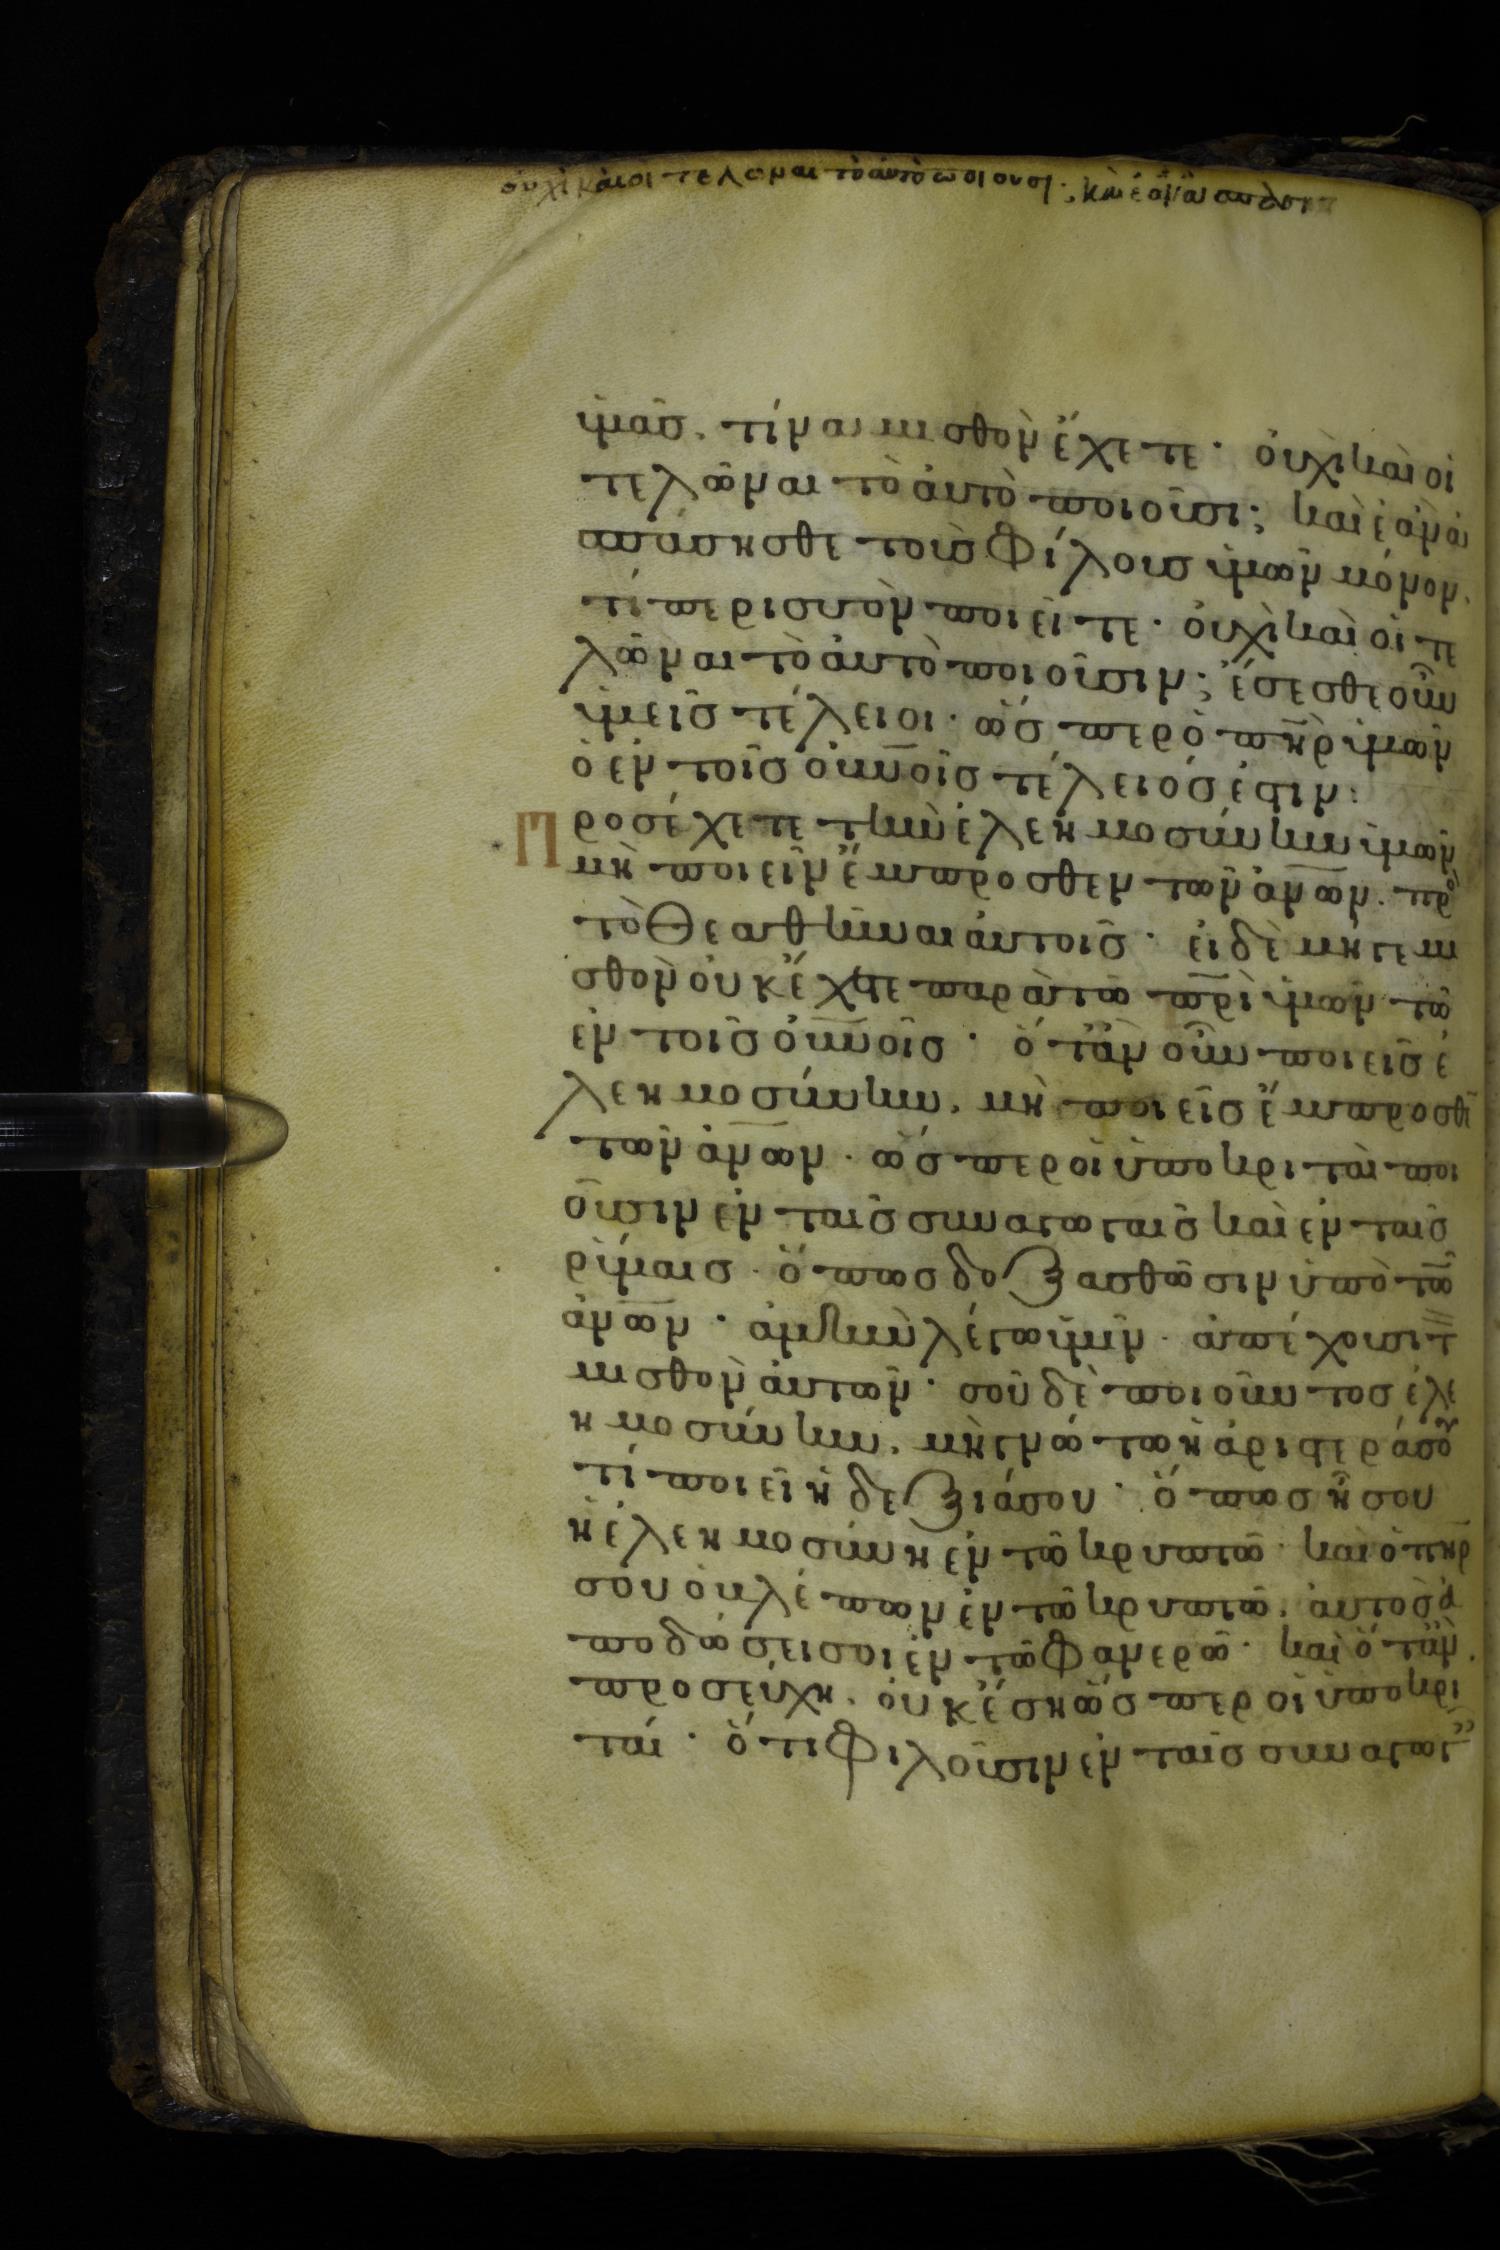 οὐχὶ και οἱ τελωναι το ἀυτὸ ποιουσι· και ἐὰν ἀσπα
ὑμᾶς, τίνα μισθὸν ἔχετε· οὐχὶ καὶ οἱ
τελῶναι τὸ ἀυτὸ ποιοῦσι; καὶ ἐὰν ἀ
σπάσησθε τοὺσ φίλουσ ὑμῶν μόνον,
τί περισσὸν ποιεῖτε· οὐχὶ καὶ οἱ τε
λῶναι τὸ ἀυτὸ ποιοῦσιν; ἔσεσθε οὖν
ὑμεῖσ τέλειοι· ὥσπερ ὁ π̅η̅ρ̅ ὑμῶν
ὁ ἐν τοῖσ ὀυ̅ν̅οῖσ τέλειόσ ἐστιν:
Προσέχετε τὴν ἐλεημοσύνην ὑμῶν
μὴ ποιεῖν ἔμπροσθεν τῶν ἀν̅ω̅ν· πρὸσ
τὸ θεαθῆναι ἀυτοῖσ· εἰ δὲ μήγε μι
σθὸν οὐκ ἔχετε παρὰ τῶ π̅ρ̅ὶ ὑμῶν τῶ
ἐν τοῖσ ὀυ̅ν̅οῖσ· ὅταν οὖν ποιεῖσ ἐ
λεημοσύνην, μὴ ποιεῖσ ἔμπροσθεν
τῶν ἀν̅ω̅ν· ὥσπερ οἱ ὑποκριταὶ ποι
οῦσιν ἐν ταῖσ συναγωγαῖσ καὶ ἐν ταῖσ
ρύμαισ· ὅπωσ δοξασθῶσιν ὑπὸ τῶν
ἀν̅ω̅ν· ἀμὴν λέγω ὑμῖν· ἀπέχουσι τ
μισθὸν ἀυτῶν· σοῦ δὲ ποιοῦντοσ ἐλε
ημοσύνην, μὴ γνώτω ἡ ἀριστερά σου
τί ποιεῖ ἡ δεξιά σου· ὅπωσ ἦ σου
ἡ ἐλεημοσύνη ἐν τῶ κρυπτῶ· καὶ ὁ π̅η̅ρ̅
σου ὁ βλέπων ἐν τῶ κρυπτῶ, ἀυτὸσ ἀ
ποδώσει σοι ἐν τῶ φανερῶ· καὶ ὅταν
προσεύχη, οὐκ ἔση ὥσπερ οἱ ὑποκρι
ταί· ὅτι φιλοῦσιν ἐν ταῖσ συναγωγ